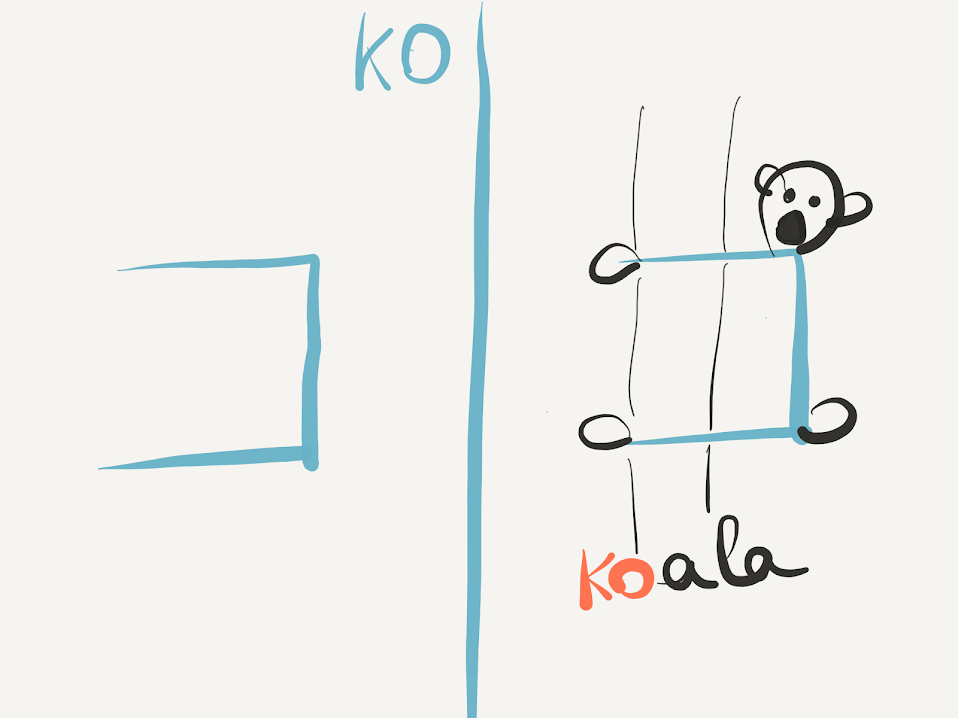 KO
コ
koala